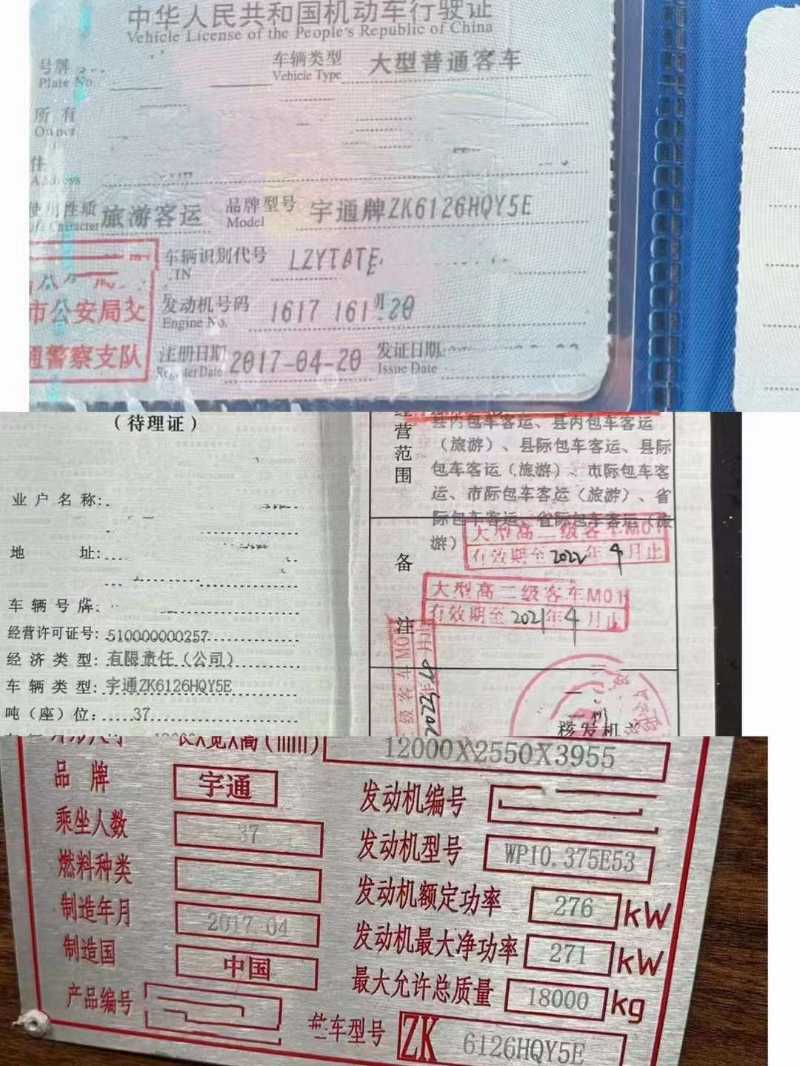 中华人民共和国机动车行驶证
Vehicle License of the People's Republic of China
号牌
Plate No.
车辆类型 大型普通客车
Vehicle Type
所有
Owner
住
Address
使用性质 旅游客运
Character
品牌型号 宇通牌ZK6126HQY5E
Model
车辆识别代号 LZYTATE
发动机号码 1617
Engine No.
市公安局交
通警察支队
注册日期 2017-04-20
Register Date
发证日期
Issue Date
(待理证)
业户名称:
地址:
车辆号牌:
经营许可证号: 510000000257
经济类型: 有限责任(公司)
车辆类型: 宇通ZK6126HQY5E
吨(座)位: 37
经营范围
县内包车客运、县内包车客运
(旅游)、县际包车客运、县际
包车客运(旅游)、市际包车客
运、市际包车客运(旅游)、省
际包车客运、省际包车客运(旅
游)
备注
大型高二级客车M01
有效期至2022年4月止
大型高二级客车M01
有效期至2021年4月止
级客车M01
核发机关
长X宽X高(mm) 12000X2550X3955
品牌 宇通
发动机编号
乘坐人数 37
发动机型号 WP10.375E53
燃料种类
发动机额定功率 276 kW
制造年月 2017.04
发动机最大净功率 271 kW
制造国 中国
最大允许总质量 18000 kg
产品编号
整车型号 ZK 6126HQY5E